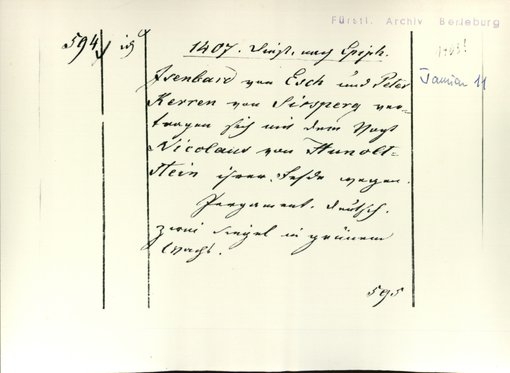 Fürstl. Archiv Berleburg
594
1407. Dinst. nach Epiph.
Januar 11
Isenbard von Esch und Peter
Kerren von Sirsperg ver-
tragen sich mit dem Vogt
Nicolaus von Hunolt-
stein ihrer Fehde wegen.
Pergament. deutsch.
zwei Siegel in grünem
Wachs.
595